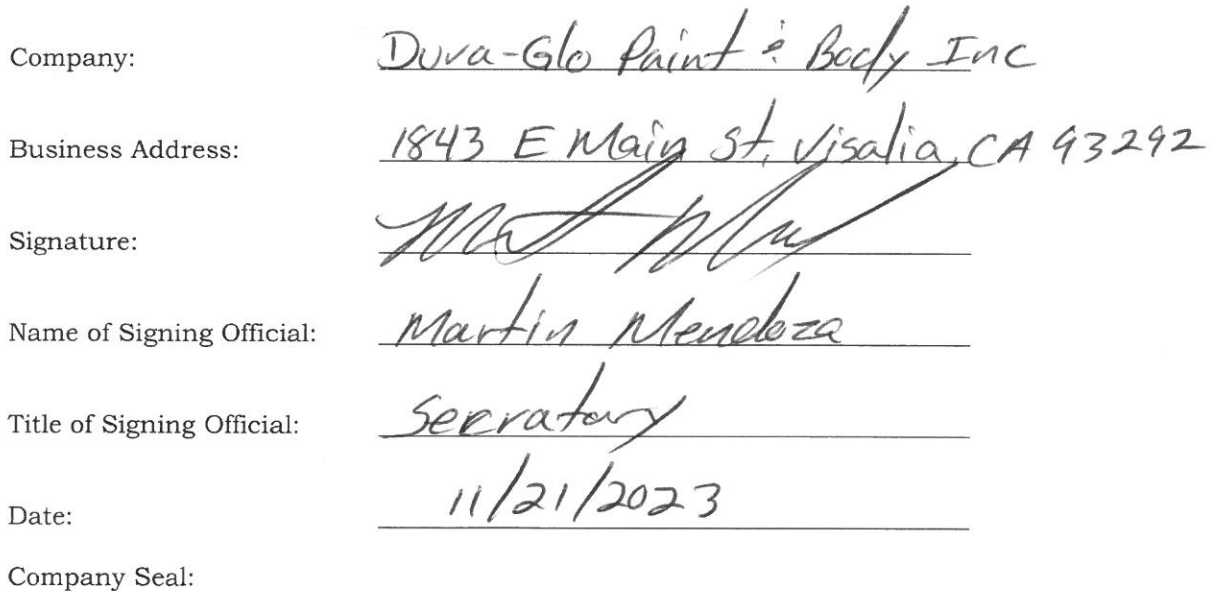 Company: Dura-Glo Paint & Body Inc
Business Address: 1843 E Main St, Visalia, CA 93292
Signature:
Name of Signing Official: Martin Mendoza
Title of Signing Official: Secratary
Date: 11/21/2023
Company Seal: